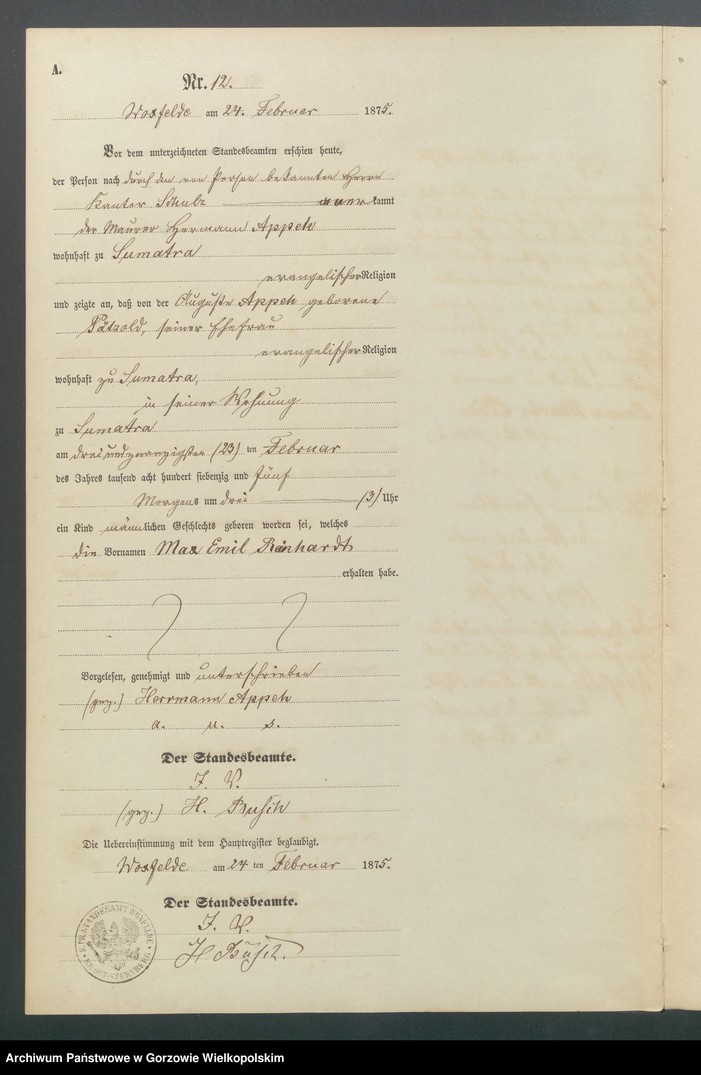 A.
Nr. 12.
Woxfelde am 24. Februar 1875.
Vor dem unterzeichneten Standesbeamten erschien heute,
der Person nach durch den von Person bekannten Herrn
Kantor Schulz anerkannt
der Maurer Hermann Appelt
wohnhaft zu Sumatra
evangelischer Religion
und zeigte an, daß von der Auguste Appelt geborene
Pätzold, seiner Ehefrau
evangelischer Religion
wohnhaft zu Sumatra,
in seiner Wohnung
zu Sumatra
am dreiundzwanzigsten (23) ten Februar
des Jahres tausend acht hundert siebenzig und fünf
Morgens um drei (3) Uhr
ein Kind männlichen Geschlechts geboren worden sei, welches
die Vornamen Max Emil Reinhardt
erhalten habe.
Vorgelesen, genehmigt und unterschrieben
(gez.) Herrmann Appelt
a. u. s.
Der Standesbeamte.
J. V.
(gez.) H. Busch
Die Uebereinstimmung mit dem Hauptregister beglaubigt.
Woxfelde am 24 ten Februar 1875.
Der Standesbeamte.
J. V.
H Busch.
STANDESAMT WOXFELDE
OST-STERNBERG
Archiwum Państwowe w Gorzowie Wielkopolskim